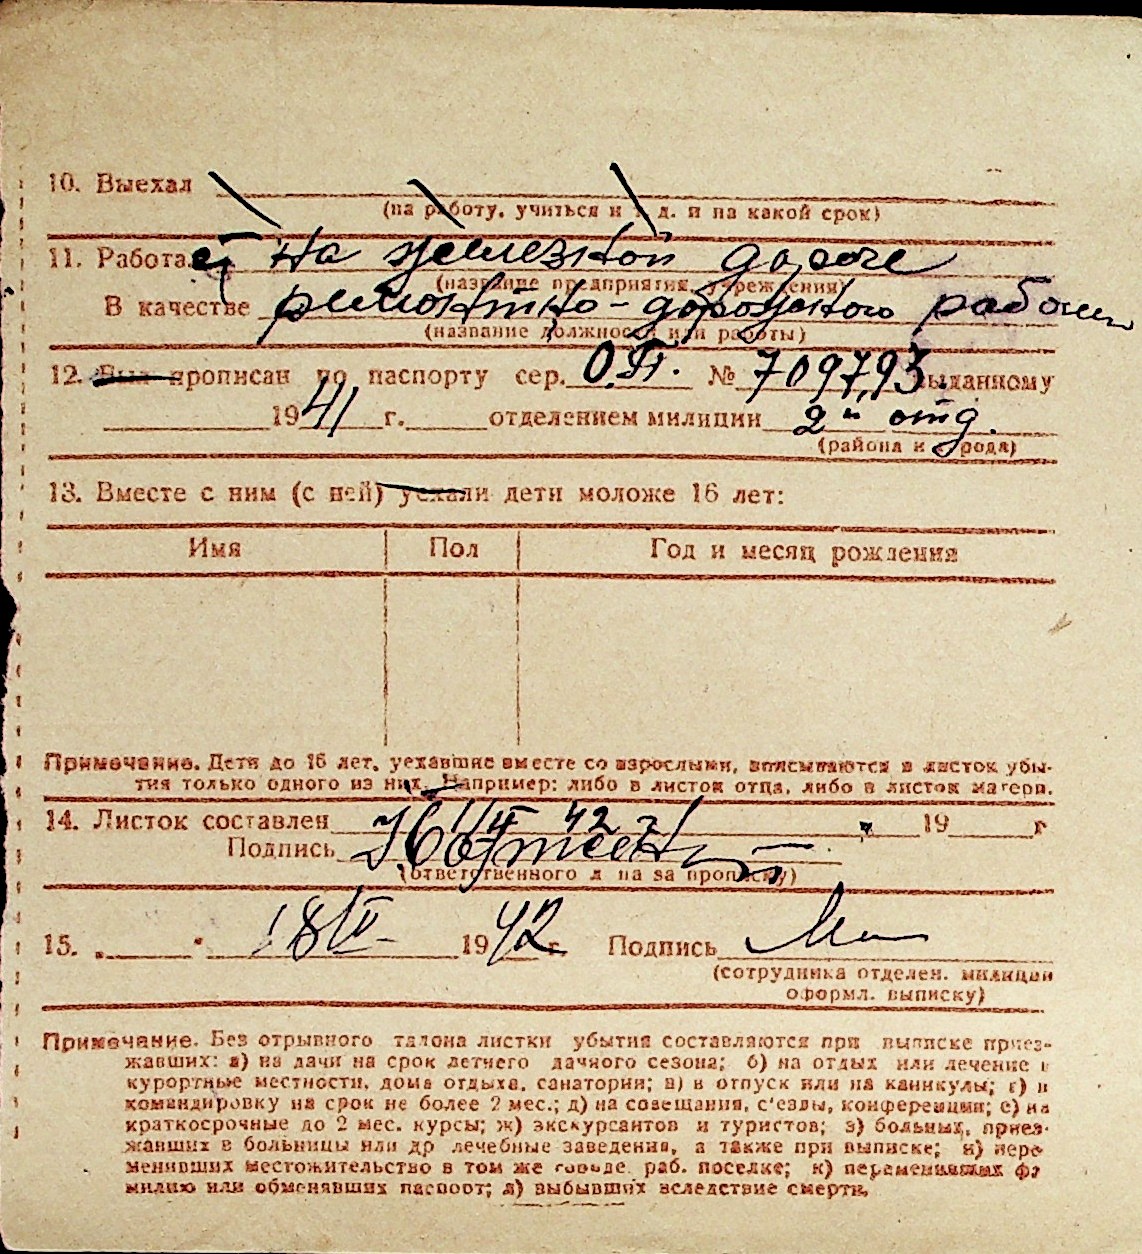 10. Выехал
(на работу, учиться и т. д. и на какой срок)
11. Работает на железной дороге
(название предприятия, учреждения)
В качестве ремонтно-дорожного рабочим
(название должности или работы)
12. Был прописан по паспорту сер. О.П. № 709793 выданному
1941 г. отделением милиции 2й отд.
(района и города)
13. Вместе с ним (с ней) уехали дети моложе 16 лет:
Имя Пол Год и месяц рождения
Примечание. Дети до 16 лет, уехавшие вместе со взрослыми, вписываются в листок убы-
тия только одного из них. Например: либо в листок отца, либо в листок матери.
14. Листок составлен 42 19 г
Подпись
(ответственного л на за прописку)
15. „ " 18/IV- 1942 г. Подпись
(сотрудника отделен. милиции
оформл. выписку)
Примечание. Без отрывного талона листки убытия составляются при выписке приез-
жавших: а) на дачи на срок летнего дачного сезона; б) на отдых или лечение в
курортные местности, дома отдыха, санатории; в) в отпуск или на каникулы; г) в
командировку на срок не более 2 мес.; д) на совещания, с'езды, конференции; е) на
краткосрочные до 2 мес. курсы; ж) экскурсантов и туристов; з) больных, приез-
жавших в больницы или др лечебные заведения, а также при выписке; и) пере
менивших местожительство в том же городе раб. поселке; к) переменивших фа
милию или обменявших паспорт; л) выбывших вследствие смерти.